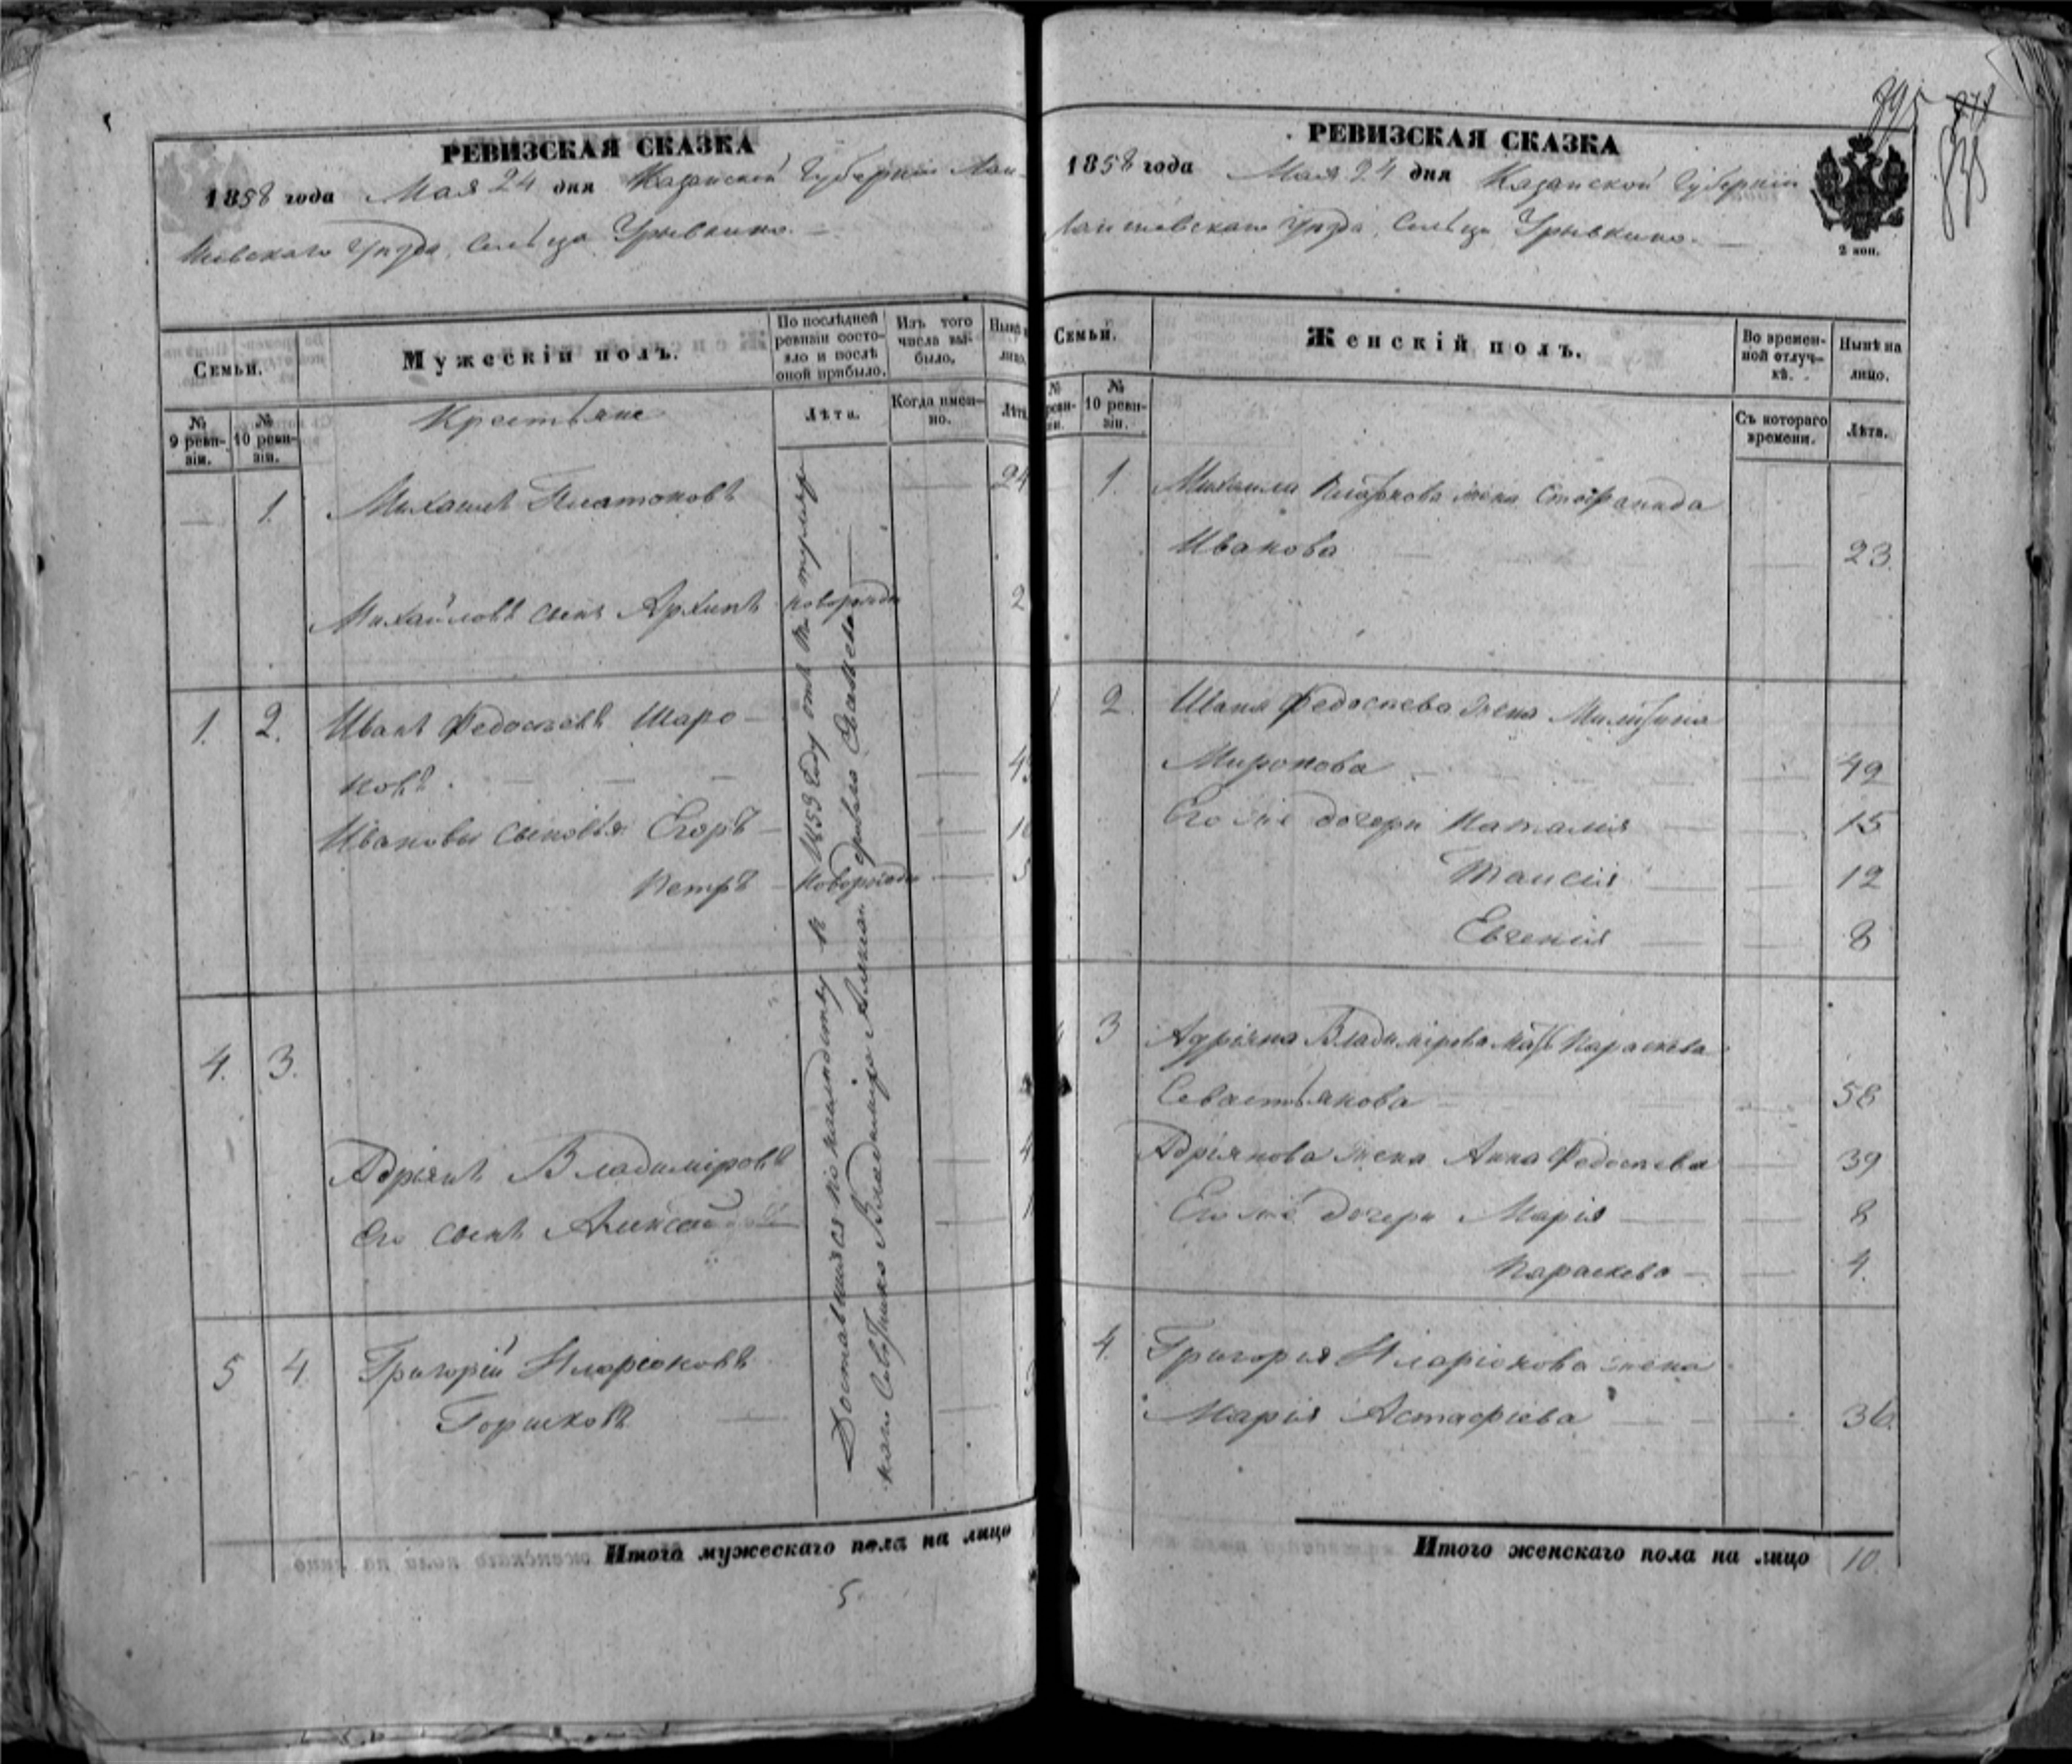 РЕВИЗСКАЯ СКАЗКА
1858 года Мая 24 дня Казанской Губерніи Лаи-
шевскаго Уѣзда, Сельца Урывкино.
Семьи.
Мужескій полъ.
По послѣдней ревизіи состо-
яло и послѣ
оной прибыло.
Изъ того
числа вы-
было.
Нынѣ
лицо.
№
9 реви-
зіи.
№
10 реви-
зіи.
Крестьяне
Лѣта.
Когда имен-
но.
Лѣта
1. Михаилъ Платоновъ 24
Михайловъ сынъ Архипъ новорожден 2
1. 2. Иванъ Федосѣевъ Шаро-
новъ.
Ивановы сыновья Егоръ
Петръ новорожден
4. 3.
Адріянъ Владиміровъ
Его сынъ Алексѣй
5 4. Григорій Иларіоновъ
Горшковъ
Доставшіяся по наслѣдству въ 1853 году отъ
Владиміра
Итого мужескаго пола на лицо
5.
РЕВИЗСКАЯ СКАЗКА
1858 года Мая 24 дня Казанской Губерніи
Лаишевскаго Уѣзда, Сельца Урывкино.
2 коп.
Семьи.
Женскій полъ.
Во времен-
ной отлуч-
кѣ.
Нынѣ на
лицо.
№
реви-
зіи.
№
10 реви-
зіи.
Съ котораго
времени.
Лѣта.
1. Михаила Платонова жена Стефанида
Иванова 23.
2. Ивана Федосѣева жена
Миронова 49
Его же дочери Наталія 15
Таисія 12
Евгенія 8
3 Адріяна Владимірова мать Параскева
Севастьянова 58
Адріянова жена Анна Федосѣева 39
Его же дочери Марія 8
Параскева 4.
4. Григорія Иларіонова жена
Марія Астафіева 36.
Итого женскаго пола на лицо 10.